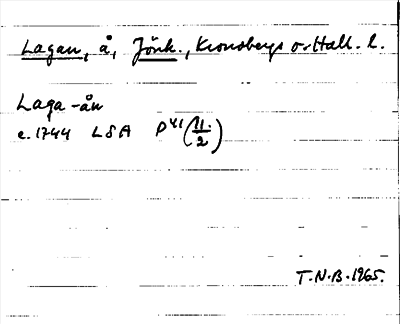 Lagan, å, Jönk., Kronobergs o. Hall. l.
Laga-ån
c. 1744 LSA P41 (11/2)
T.N.B. 1965.